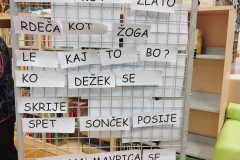 ZLATO
RDEČA KOT ŽOGA
LE KAJ TO BO?
KO DEŽEK SE
SKRIJE
SPET SONČEK POSIJE
MAVRICA SE